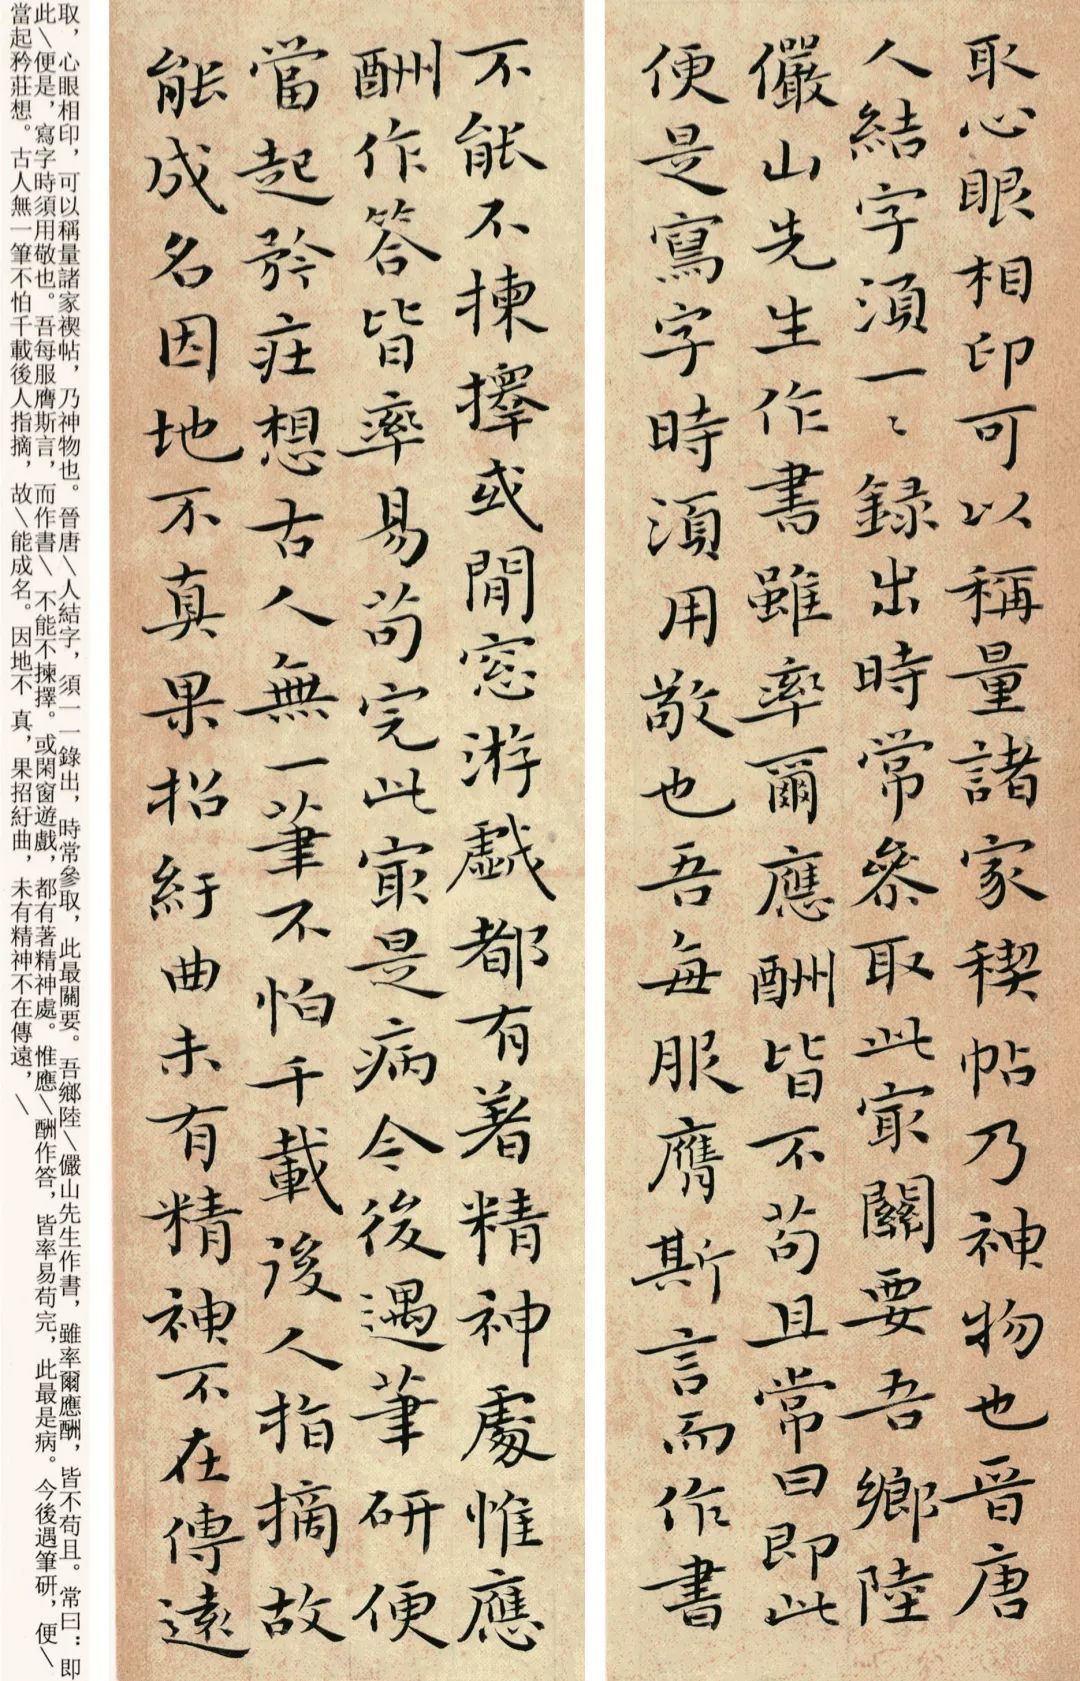 取心眼相印可以稱量諸家稧帖乃神物也晉唐
人結字須一〻錄出時常叅取此㝡關要吾鄉陸
儼山先生作書雖率爾應酬皆不苟且常曰即此
便是寫字時須用敬也吾每服膺斯言而作書
不能不揀擇或閒窓游戲都有著精神處惟應
酬作答皆率易苟完此㝡是病今後遇筆研便
當起矜莊想古人無一筆不怕千載後人指摘故
能成名因地不真果招紆曲未有精神不在傳遠
取，心眼相印，可以稱量諸家禊帖，乃神物也。晉唐\人結字，須一一錄出，時常參取，此最關要。吾鄉陸\儼山先生作書，雖率爾應酬，皆不苟且。常曰：即
此\便是，寫字時須用敬也。吾每服膺斯言，而作書\不能不揀擇。或閑窗遊戲，都有著精神處。惟應\酬作答，皆率易苟完，此最是病。今後遇筆研，便\
當起矜莊想。古人無一筆不怕千載後人指摘，故\能成名。因地不 真，果招紆曲，未有精神不在傳遠，\